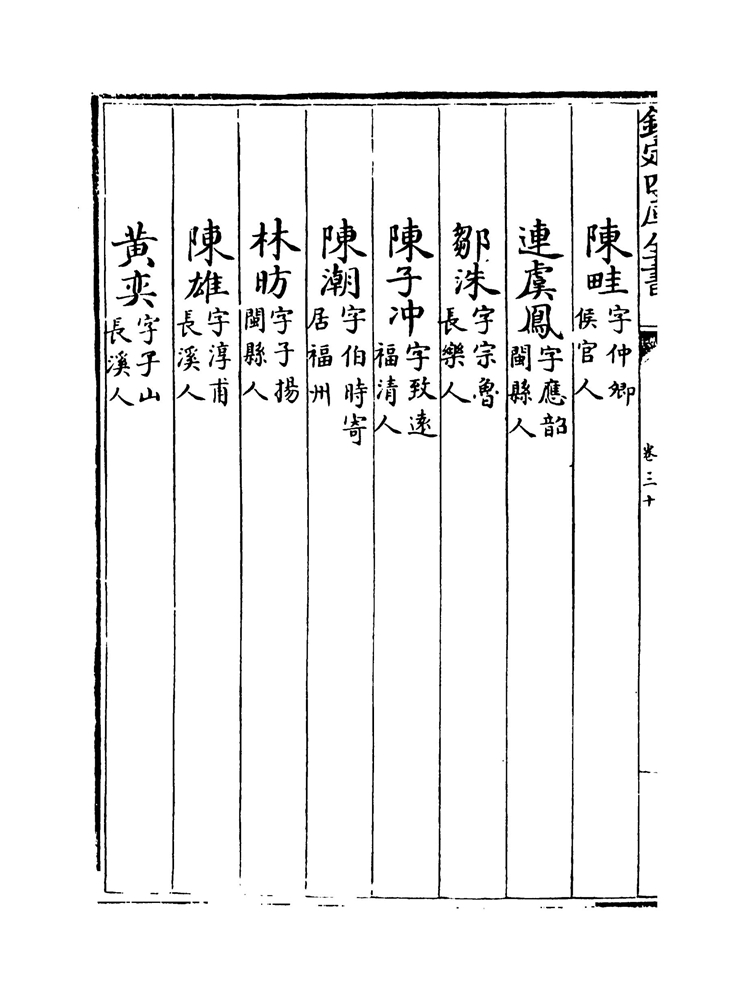 欽定四庫全書
卷三十
陳畦字仲卿侯官人
連虞鳳字應韶閩縣人
鄒洙字宗魯長樂人
陳子冲字致遠福清人
陳潮字伯時寄居福州
林昉字子揚閩縣人
陳雄字淳甫長溪人
黃奕字子山長溪人